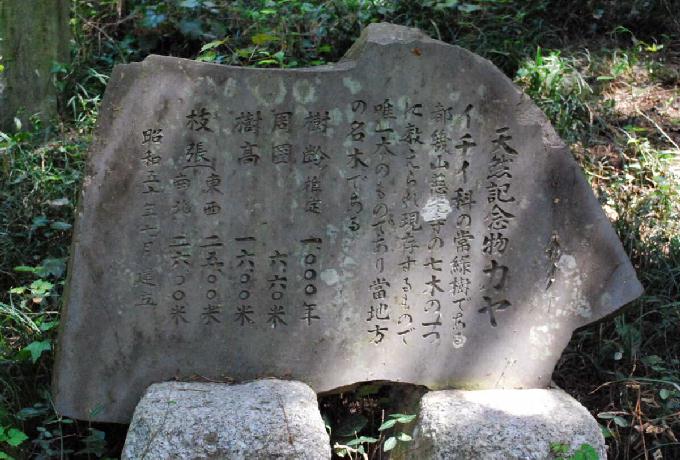 天然記念物カヤ
イチイ科の常緑樹である
都幾山慈光寺の七木の一つ
に数えられ現存するもので
唯一本のものであり當地方
の名木である
樹齢 推定 一〇〇〇年
周囲 六六〇米
樹高 一六〇〇米
枝張 東西 二五〇〇米
南北 二六〇〇米
昭和五十年七月 建立